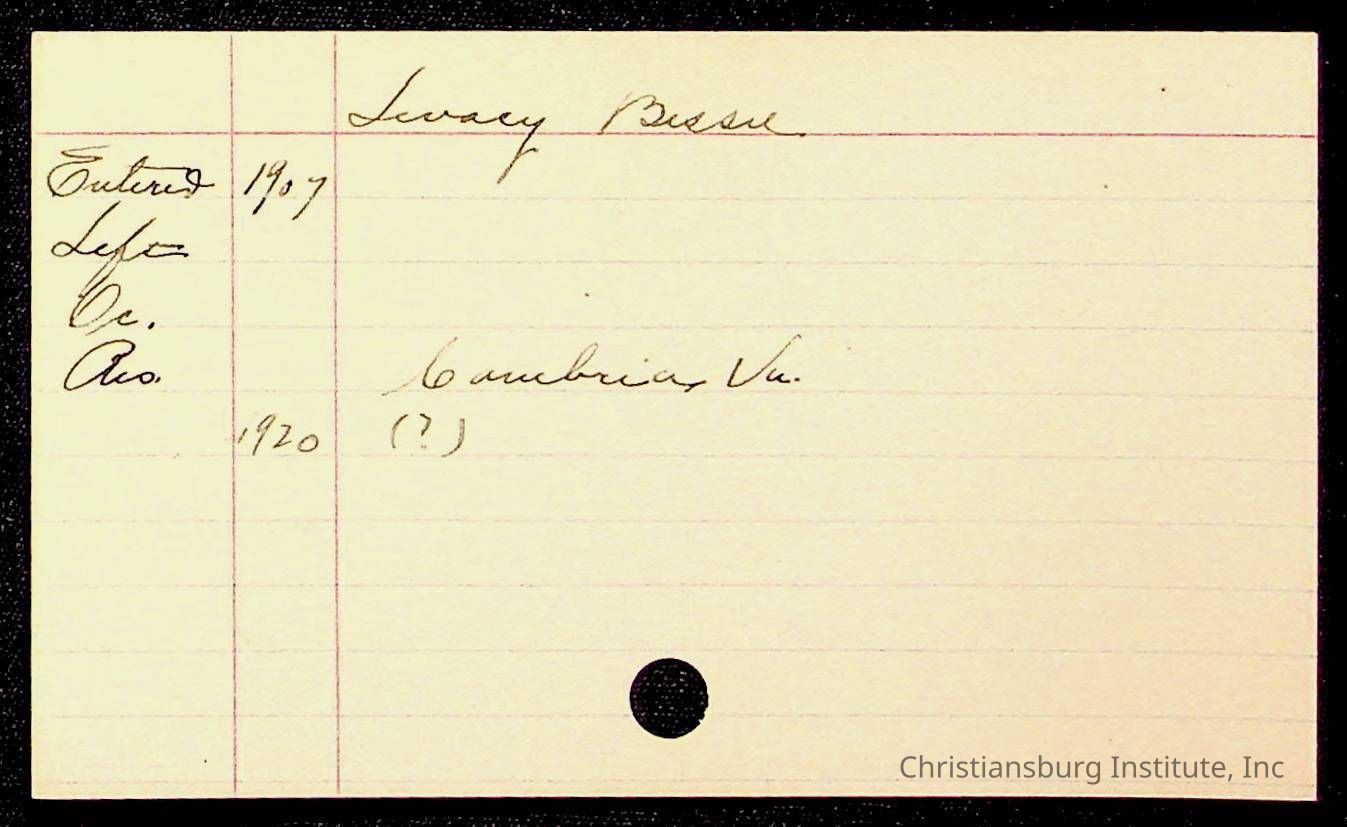 Livacy Bessie
Entered 1907
Left
Oc.
Res. Cambria, Va.
1920 (?)
Christiansburg Institute, Inc